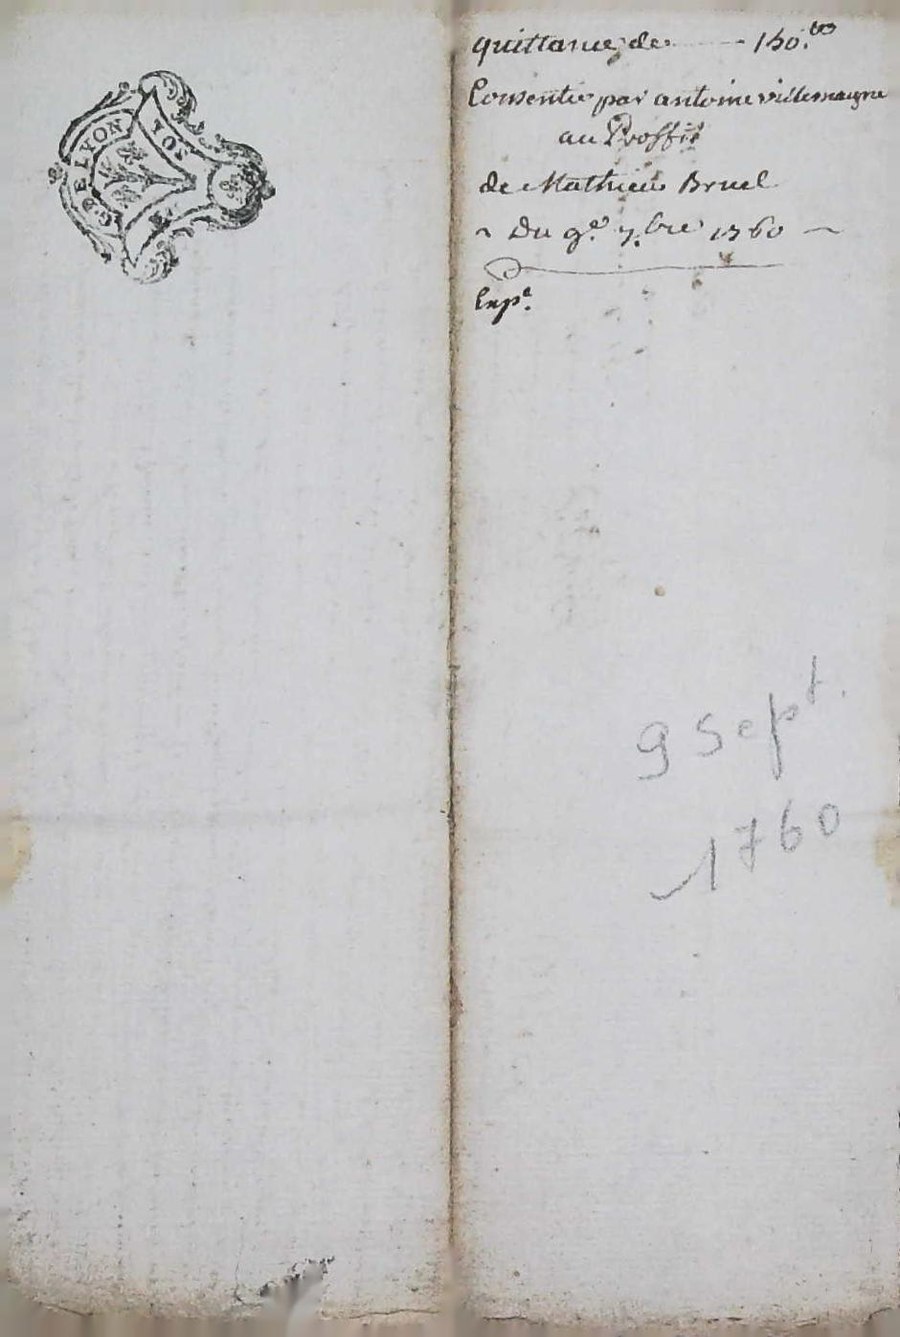 G. DE LYON
SOL
quittance de 150.tt
Consentie par antoine villemagne
au Proffit
de Mathieu Bruel
~ Du 9.e 7.bre 1760 ~
Exp.e
9 Sept.
1760